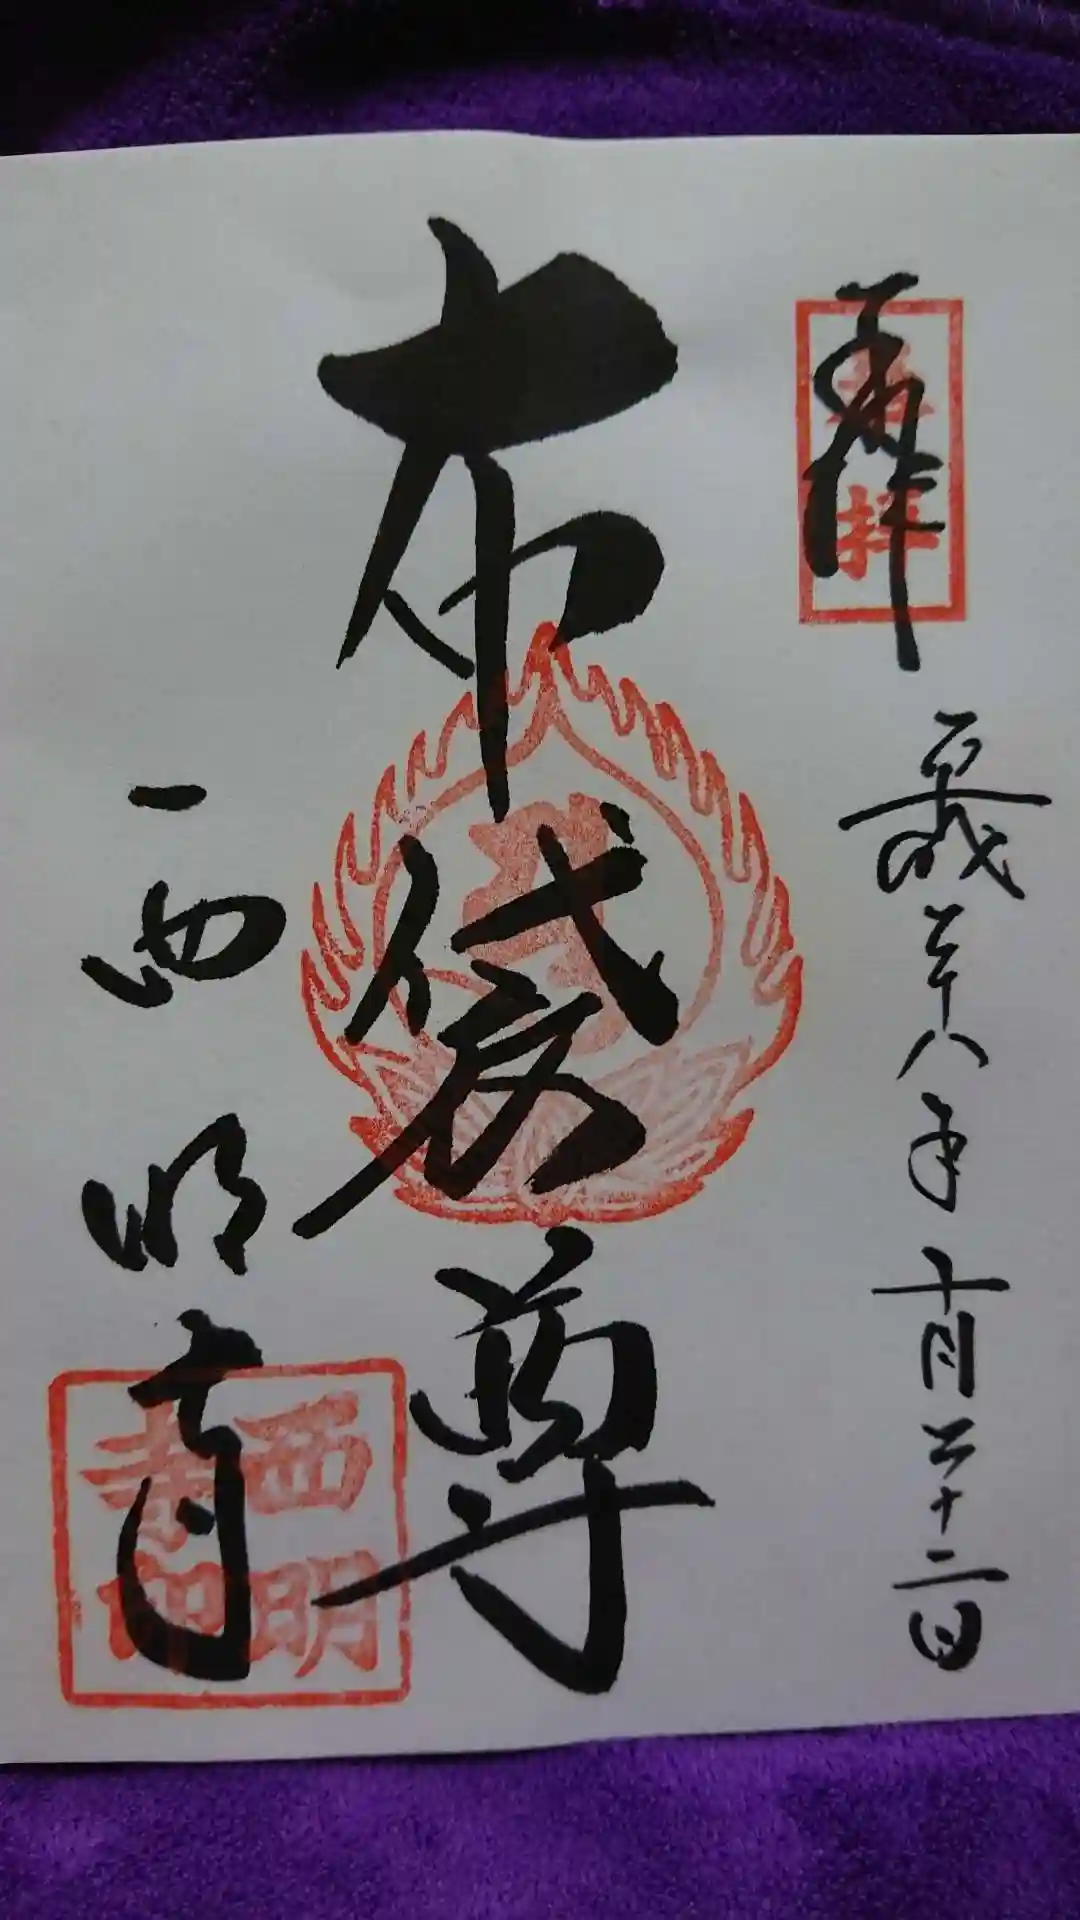 奉拝
奉拝
平成二十八年十月二十二日
布袋尊
西明寺
西明寺印